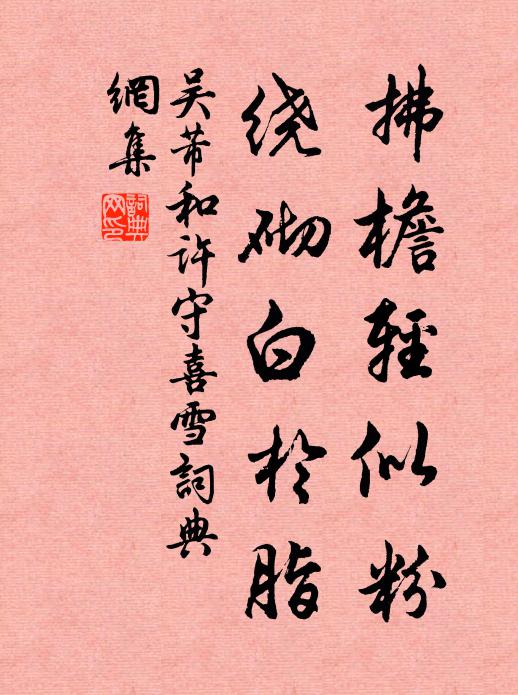 拂檐輕似粉
绕砌白於脂
吴芾和许守喜雪詞典
網集
詞典網印